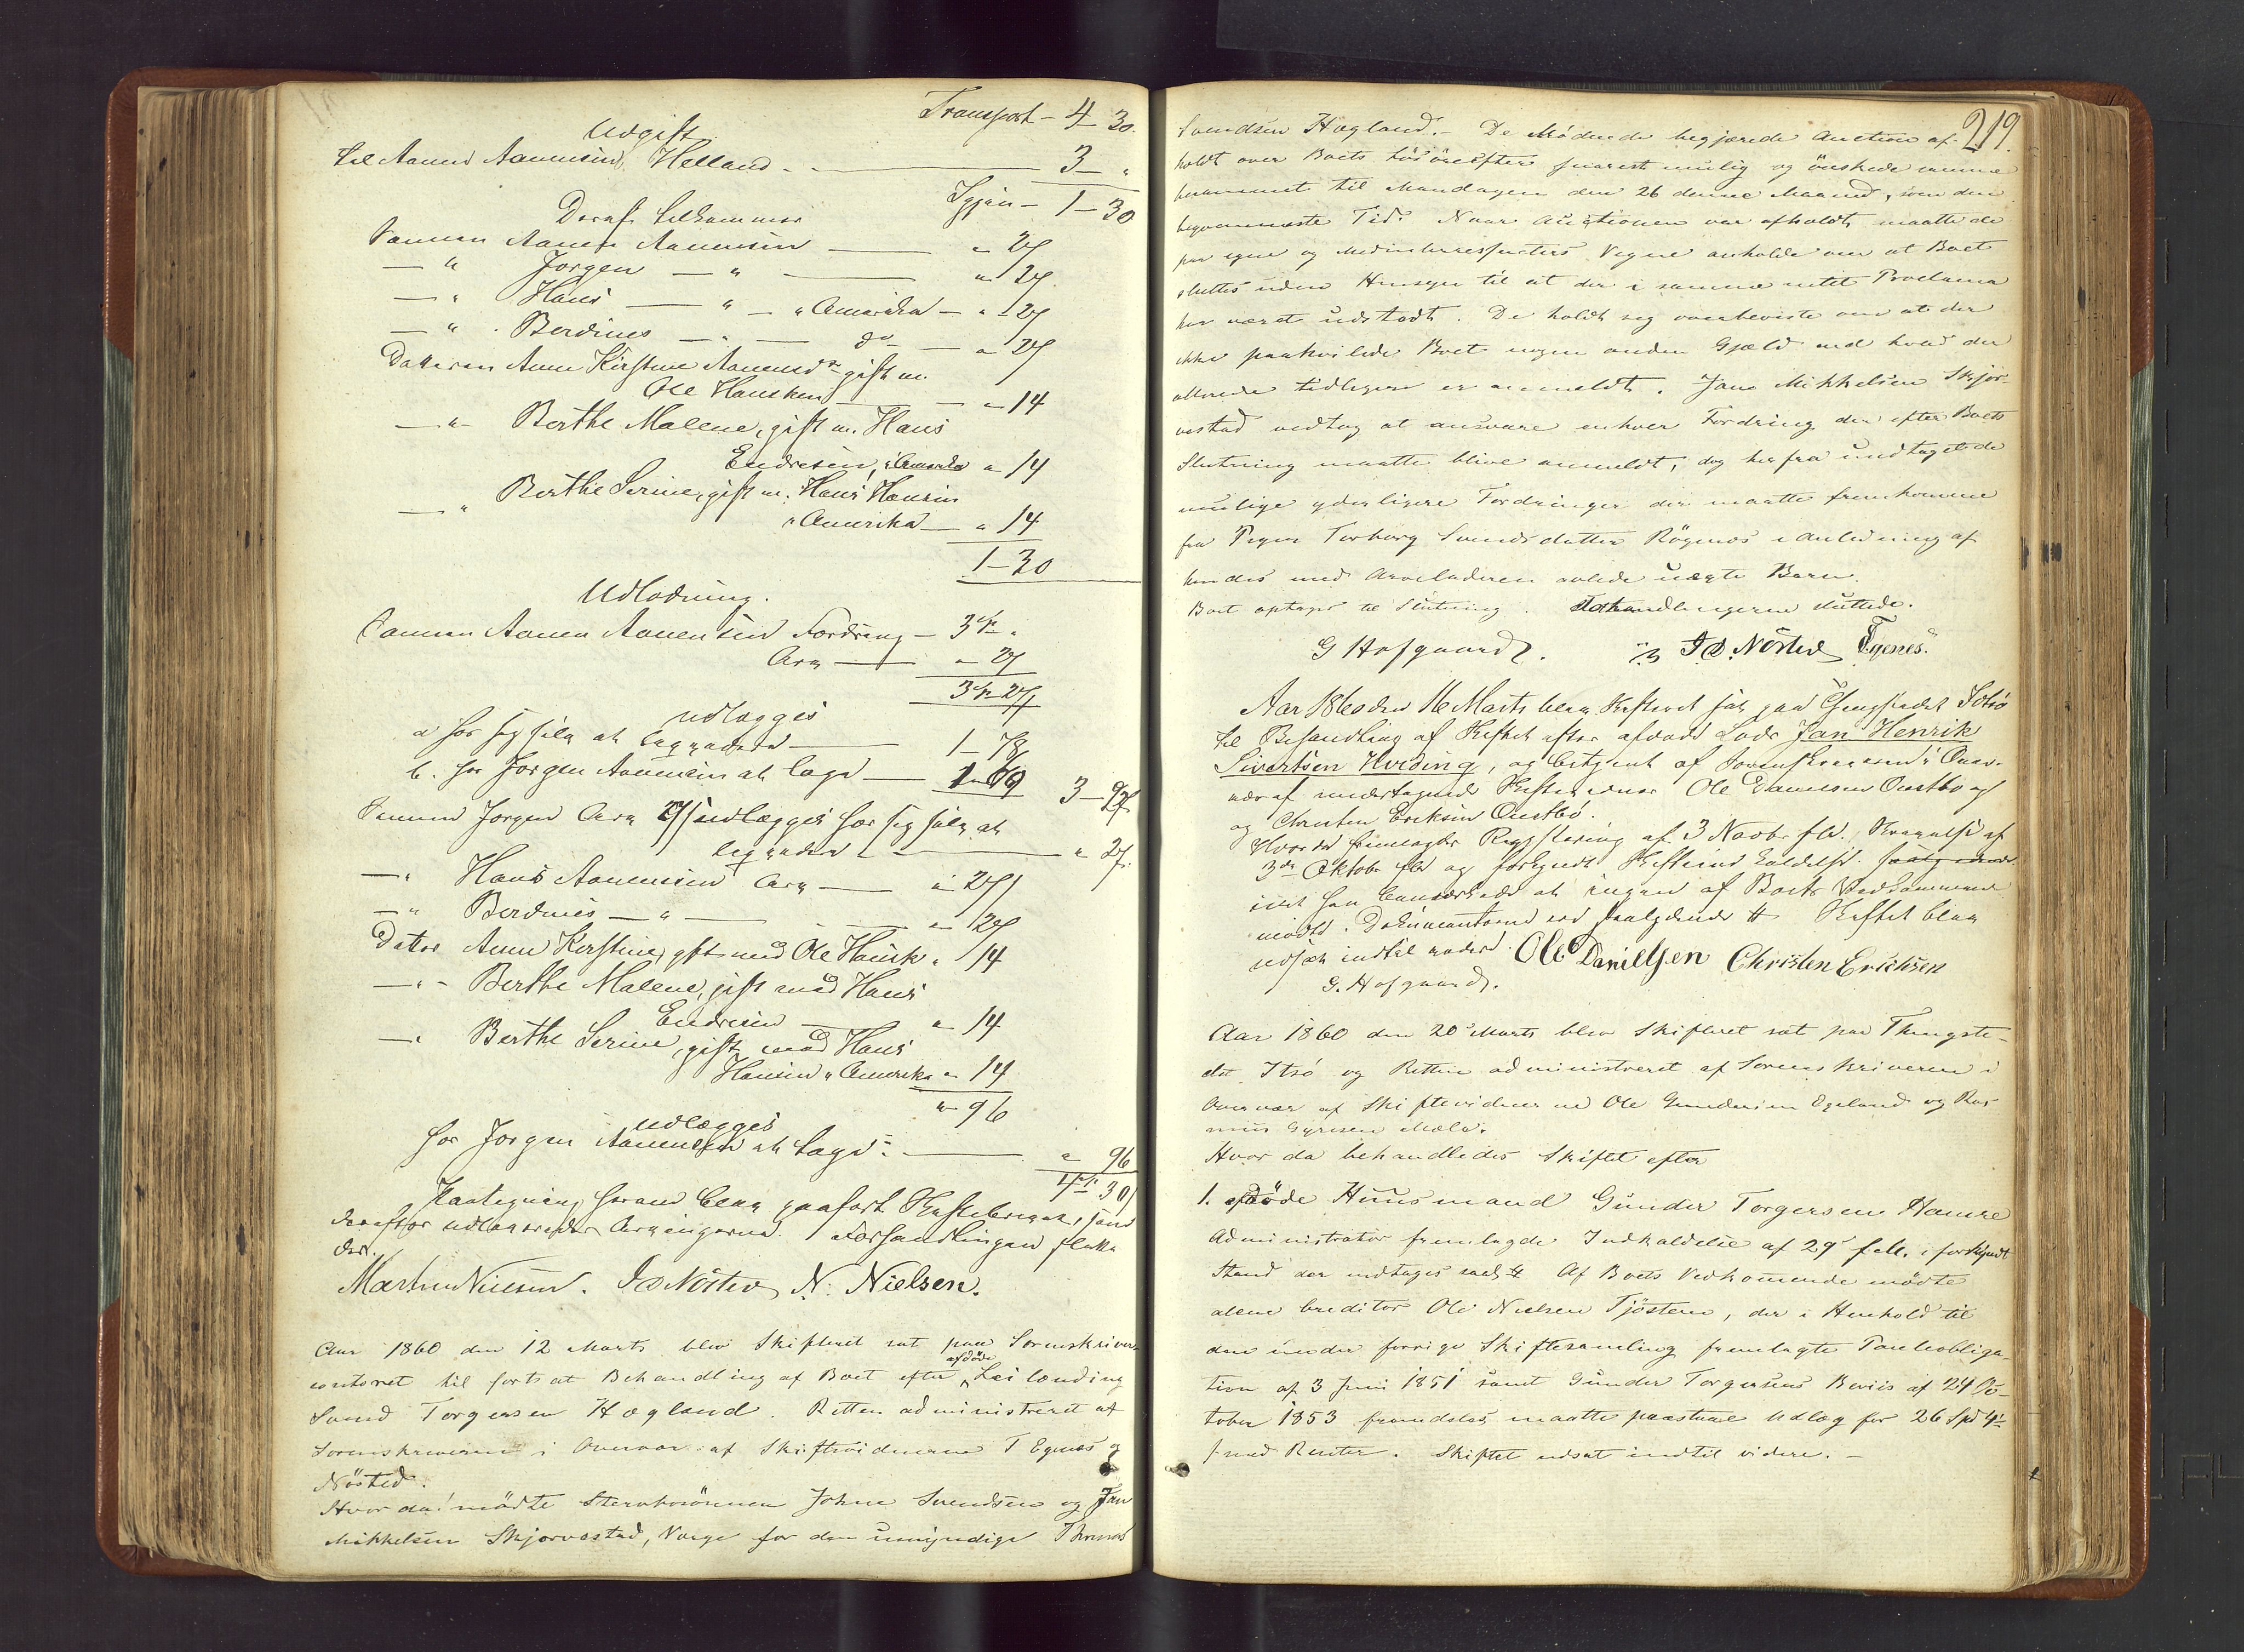 Transport - 4 - 30.
Udgift
til Aanen Aanensen Helland - 3 - "
Igjen - 1 - 30
Deraf tilkommer
Sønnen Aanen Aanensen - " 27
- " Jørgen - " - " 27
- " Hans - " - i Amerika - " 27
- " Berdines - " - do - " 27
Datteren Anne Kirstine Aanensd. gift m.
Ole Hansken - " 14
- " - Berthe Malene, gift m. Hans
Endresen, i Amerika " 14
- " Berthe Serine, gift m. Hans Hansen
i Amerika - " 14
1 - 30
Udlodning.
Sønnen Aanen Aanensen Fordring - 3 "
Arv - " 27
3 - 27
udlægges
a for sig selv at beqvadere - 1 - 78
b. hos Jørgen Aanensen at tage - 1 - 69 3 - 27
Sønnen Jørgen Arv 27 udlægges hos sig selv at
- " 27.
- " Hans Aanensen Arv - " 27
- " Berdines - " - " 27
Datter Anne Kirstine, gift med Ole Hansk. " 14
- " - Berthe Malene, gift med Hans
Endresen - " 14
- " Berthe Serine, gift med Hans
Hansen i Amerika " 14
" 96
udlægges
hos Jørgen Aanensen at tage: - " 96
4 30
Paategning herom blev paaført Skiftebrevet, som
derefter udleveredes Arvingerne. Forhandlingen slutte
des.
Martin Nielsen. I D Nösted N. Nielsen.
Aar 1860 den 12 Marts blev Skifteret sat paa Sorenskriver-
contoret til fortsat Behandling af Boet efter afdöde Leilænding
Svend Torgersen Hægland. Retten administreret af
Sorenskriveren i Overvær af Skiftevidnerne T Egenes og
Nösted.
Hvor da! mödte Stervbosönnen Johne Svendsen og Jan
Mikkelsen Skjørvestad, Værge for den umyndige Thomas
219.
Svendsen Hægland. - De Mödende begjærede Auction af-
holdt over Boets Lösöreefter snarest mulig og önskede samme
berammet til Mandagen den 26 denne Maaned, som den
beqvemmeste Tid. Naar Auctionen var afholdt, maatte de
paa egne og Medinteressenters Vegne anholde om at Boet
sluttes uden Hensyn til at der i samme intet Proclama
har været udstædt. De holdt sig overbeviste om at der
ikke paahvilede Boet nogen anden Gjæld end hvad der
allerede tidligere er anmeldt. Jan Mikkelsen Skjör-
vestad vedtog at ansvare enhver Fordring der efter Boets
Slutning maatte blive anmeldt, dog herfra undtaget de
mulige yderligere Fordringer der maatte fremkomme
fra Pigen Torborg Svendsdatter Rögenes i Anledning af
hendes med Arveladeren avlede uægte Barn.
Boet optages til Slutning. Forhandlingerne sluttede.
G Hofgaard. I D. Nösted T Egenes.
Aar 1860 den 16 Marts blev Skifteret sat paa Thingstedet Idsö
til Behandling af Skiftet efter afdöde Lods Jan Henrik
Sivertsen Hveding, og betjent af Sorenskriveren i Over-
vær af undertegnede Skiftevidner Ole Danielsen Oustbö og
og Christen Eriksen Oustbö.
Hvor da fremlagdes Registrering af 3 Novbr f. A.,
3de Oktober f A og forkyndt Skifterets Indkaldelse.
idet han bemærkede at ingen af Boets Vedkommende
mødte. Dokumenterne ere saalydende # Skiftet blev
udsat indtil videre. Ole Danielsen Christen Erichsen
G. Hofgaard.
Aar 1860 den 20 Marts blev Skifteret sat paa Thingste-
det Idsö og Retten administreret af Sorenskriveren i
Overvær af Skiftevidnerne Ole Gundersen Egeland og Ras-
mus Gyresen Mæle.
Hvor da behandledes Skiftet efter
1. afdöde Huusmand Gunder Torgersen Hamre
Administrator fremlagde Indkaldelse af 29 f. M. i forkyndt
Stand der indtages saal. # Af Boets Vedkommende mödte
alene Creditor Ole Nielsen Tjösten, der i Henhold til
den under forrige Skiftesamling fremlagte Panteobliga-
tion af 3 Juni 1851 samt Gunder Torgersens Beviis af 24 Oc-
tober 1853 fremdeles maatte paastaae Udlæg for 26 Spd 4
med Renter. Skiftet udsat indtil videre. -